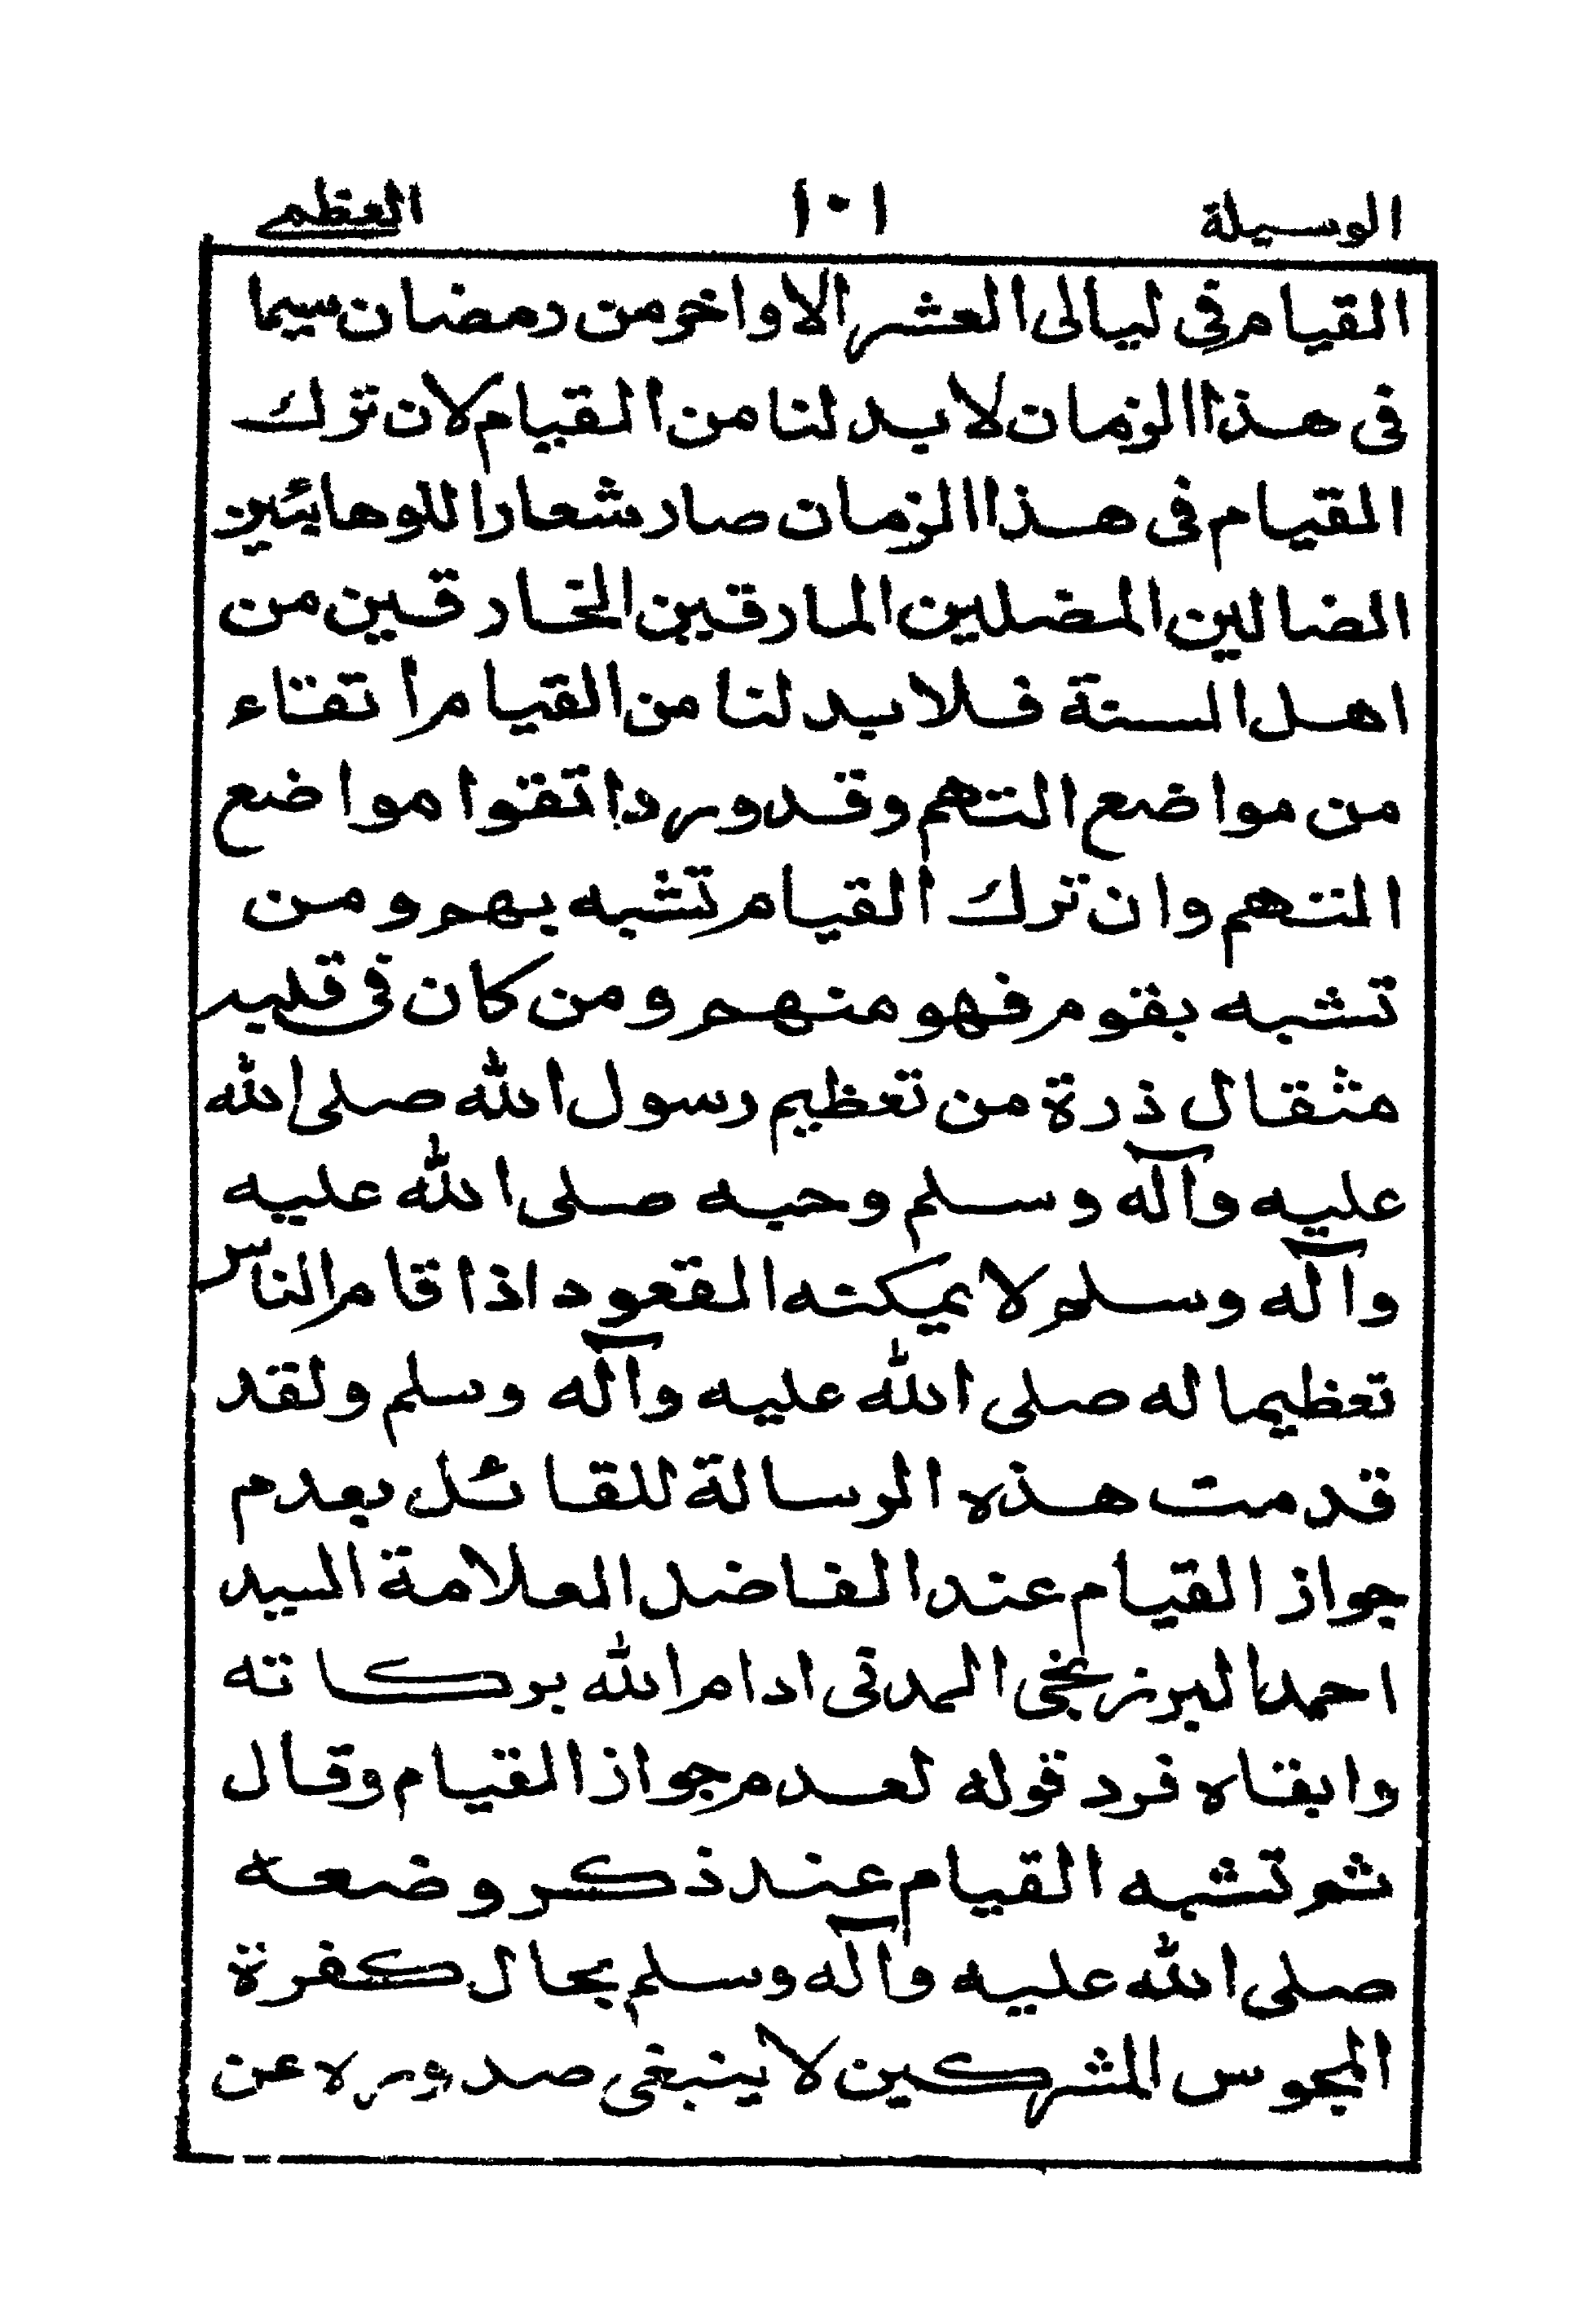 الوسيلة ١٠١ العظمى
القيام في ليالى العشر الاواخر من رمضان سيما
فى هذا الزمان لا بد لنا من القيام لان ترك
القيام فى هذا الزمان صار شعارا للوهابيّين
الضالين المضلين المارقين الخارقين من
اهل السنة فلا بد لنا من القيام اتقاء
من مواضع التهم وقد ورد اتقوا مواضع
التهم وان ترك القيام تشبه بهم و من
تشبه بقوم فهو منهم و من كان فى قلبه
مثقال ذرة من تعظيم رسول الله صلى الله
عليه وآله وسلم وحبه صلى الله عليه
وآله وسلم لا يمكنه القعود اذا قام الناس
تعظيما له صلى الله عليه وآله وسلم ولقد
قدمت هذه الرسالة للقائل بعدم
جواز القيام عند الفاضل العلامة السيد
احمد البرزنجى المدنى ادام الله بركاته
وابقاه فرد قوله لعدم جواز القيام وقال
ثم تشبه القيام عند ذكر وضعه
صلى الله عليه وآله وسلم بحال كفرة
المجوس المشركين لا ينبغى صدوره عن